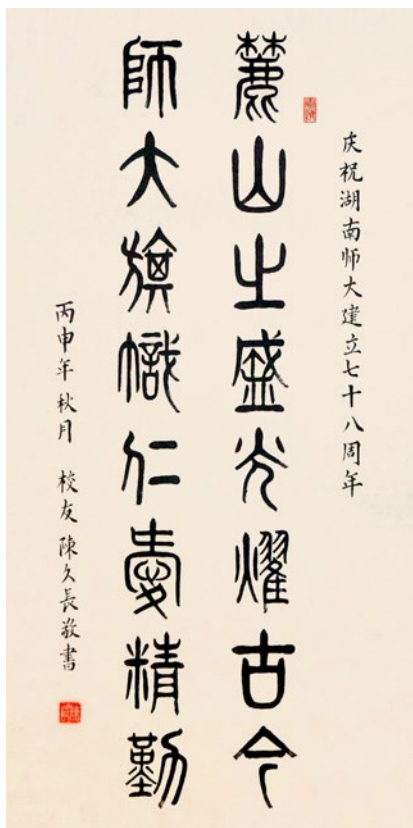 庆祝湖南师大建立七十八周年
麓山之盛光耀古今
師大旗幟仁愛精勤
丙申年秋月 校友陳久長敬書